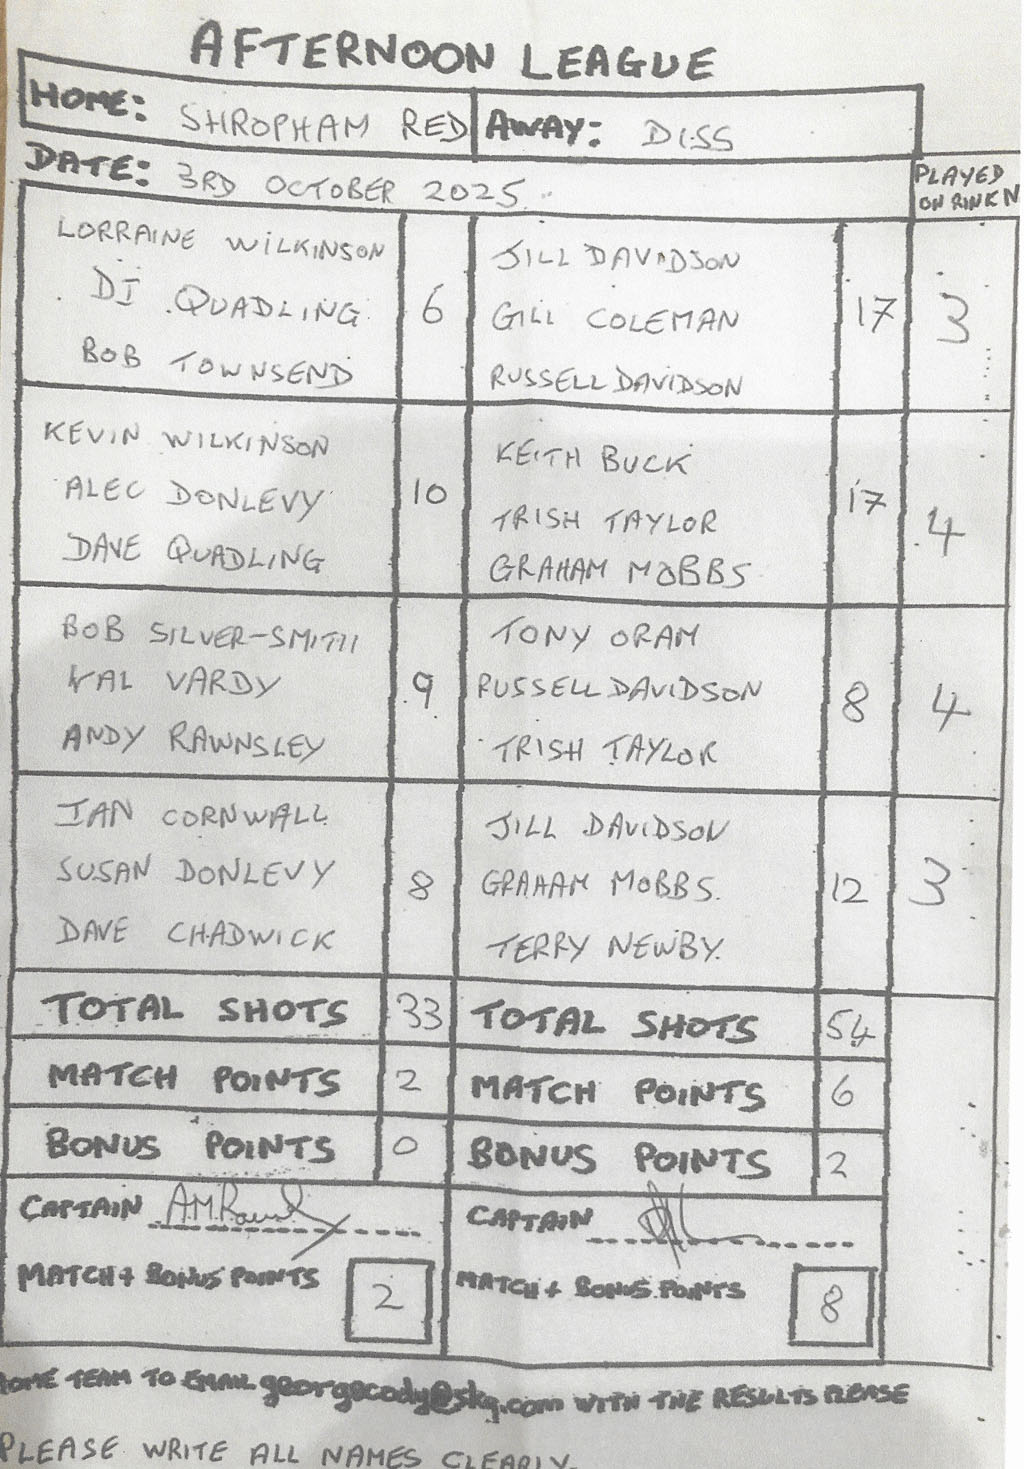 AFTERNOON LEAGUE
HOME: SHROPHAM RED AWAY: DISS
DATE: 3RD OCTOBER 2025
PLAYED
ON RINK N
LORRAINE WILKINSON
DI QUADLING
BOB TOWNSEND
6
JILL DAVIDSON
GILL COLEMAN
RUSSELL DAVIDSON
17
3
KEVIN WILKINSON
ALEC DONLEVY
DAVE QUADLING
10
KEITH BUCK
TRISH TAYLOR
GRAHAM MOBBS
17
4
BOB SILVER-SMITH
VAL VARDY
ANDY RAWNSLEY
9
TONY ORAM
RUSSELL DAVIDSON
TRISH TAYLOR
8
4
IAN CORNWALL
SUSAN DONLEVY
DAVE CHADWICK
8
JILL DAVIDSON
GRAHAM MOBBS.
TERRY NEWBY.
12
3
TOTAL SHOTS 33 TOTAL SHOTS 54
MATCH POINTS 2 MATCH POINTS 6
BONUS POINTS 0 BONUS POINTS 2
CAPTAIN CAPTAIN
MATCH + BONUS POINTS 2 MATCH + BONUS POINTS 8
HOME TEAM TO EMAIL georgecody@sky.com WITH THE RESULTS PLEASE
PLEASE WRITE ALL NAMES CLEARLY.